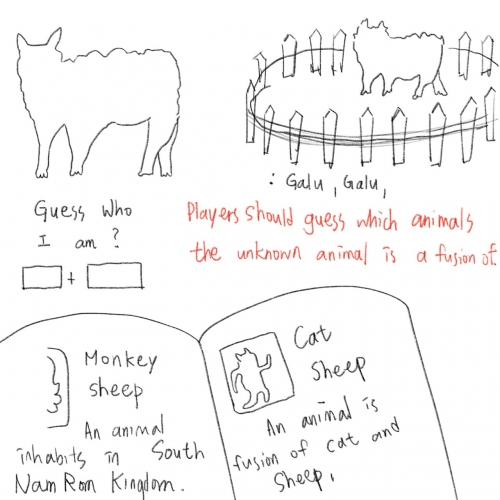 Guess Who
I am ?
+
: Galu, Galu,
Players should guess which animals
the unknown animal is a fusion of.
Monkey
sheep
An animal
inhabits in South
Nam Rom Kingdom.
Cat
Sheep
An animal is
fusion of cat and
Sheep.